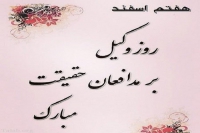 هفتم اسفند
روز وکیل
بر مدافعان حقیقت
مبارک